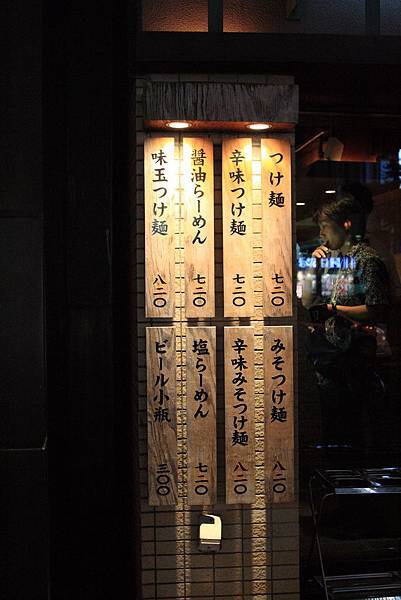 つけ麺 七二〇
辛味つけ麺 七二〇
醤油らーめん 七二〇
味玉つけ麺 八二〇
みそつけ麺 八二〇
辛味みそつけ麺 八二〇
塩らーめん 七二〇
ビール小瓶 三〇〇